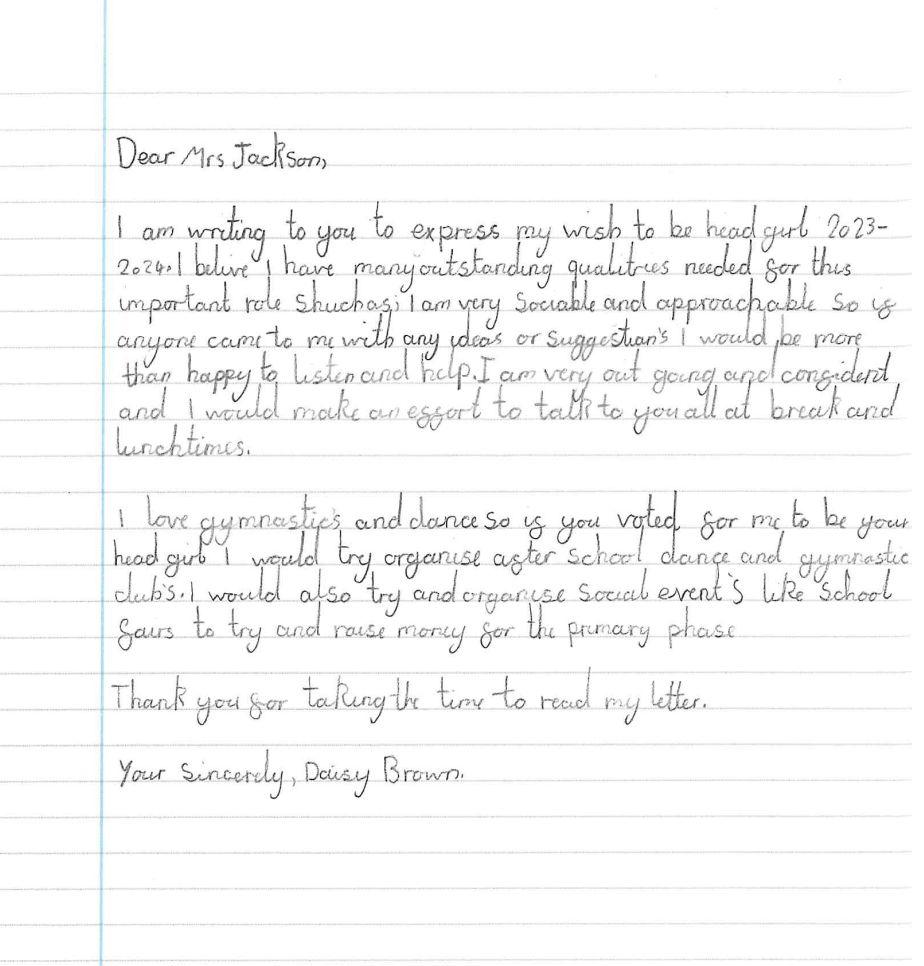 Dear Mrs Jackson,
I am writing to you to express my wish to be head girl 2023-
2024. I belive I have many outstanding qualitries needed for this
important role shuchas; I am very sociable and approachable so if
anyone came to me with any ideas or suggestian's I would be more
than happy to listen and help. I am very out going and confident
and I would make an effort to talk to you all at break and
lunchtimes.
I love gymnastics and dance so if you voted for me to be your
head girl I would try organise after school dance and gymnastic
club's. I would also try and organise social event's like school
fairs to try and raise money for the primary phase
Thank you for taking the time to read my letter.
Your sincerely, Daisy Brown.